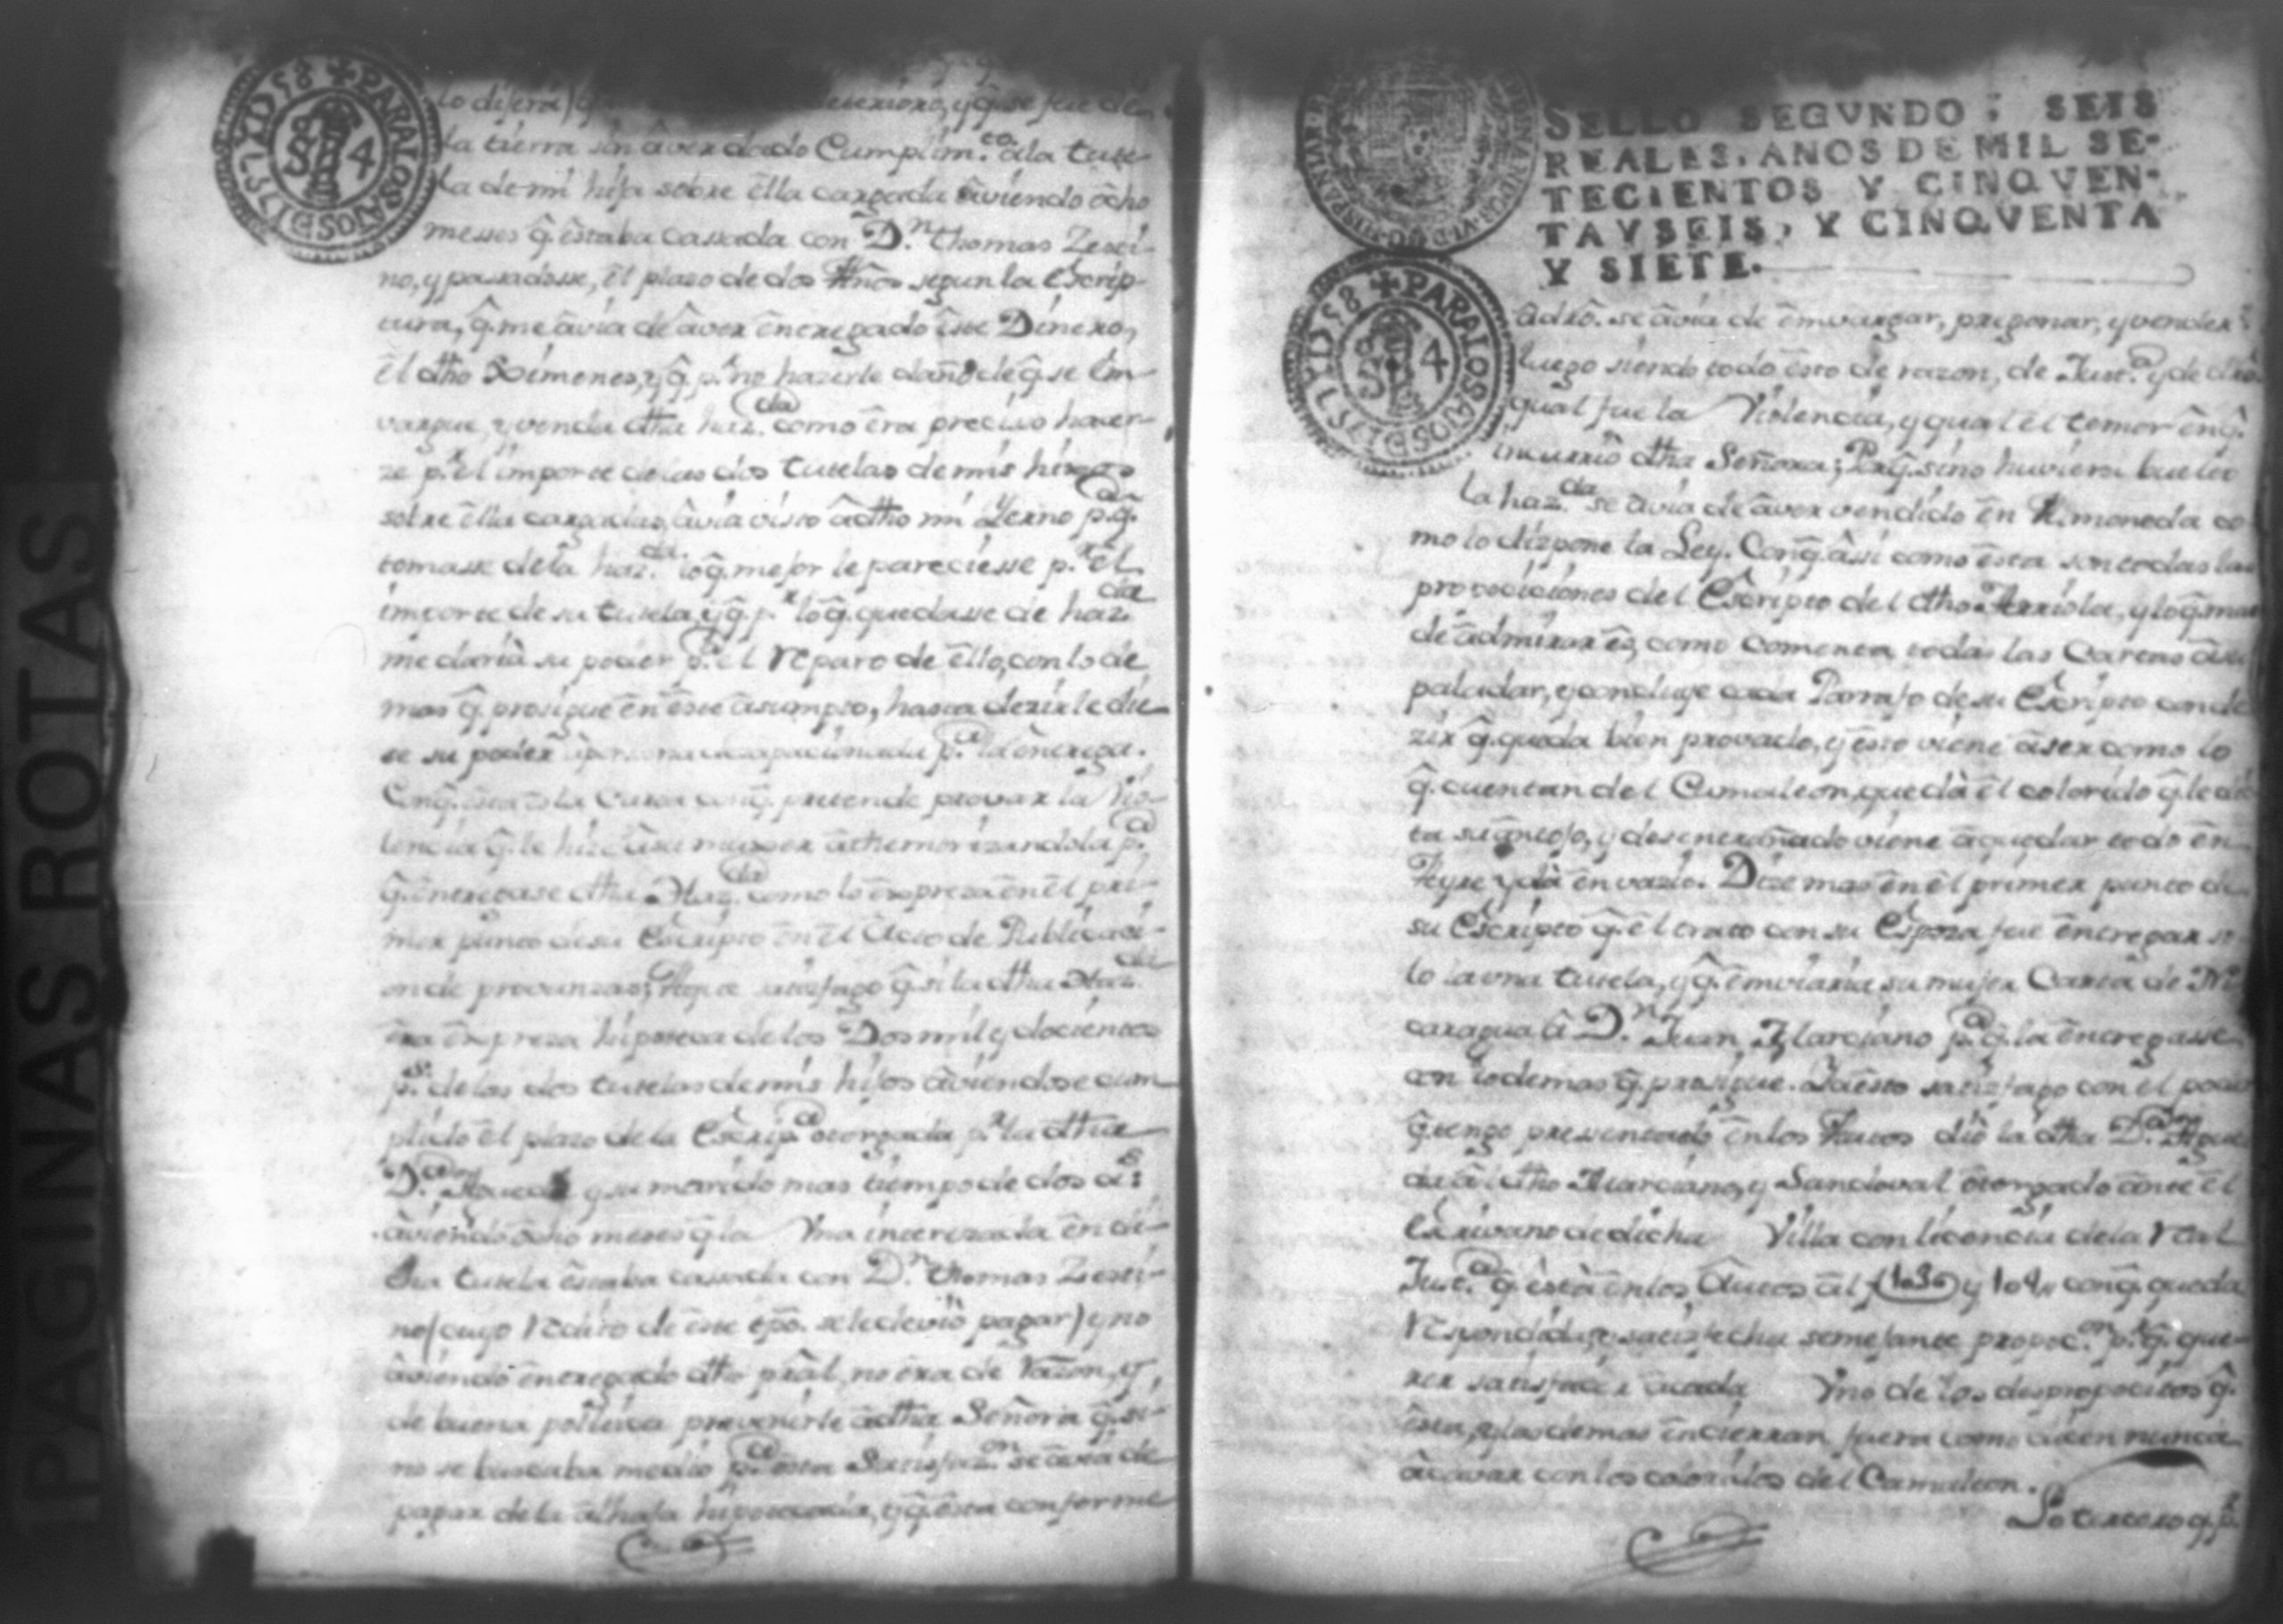 PAGINAS ROTAS
PARA LOS AÑOS D 1757 Y D 58
S 4
lo difera y q̂ se fue de
la tierra sin âver dado Cumplim.to âla tute-
la de mi hija sobre êlla cargada âviendo ôcho
messes q̂. êstaba cassada con D.n thomas Zesti-
no, y passadosse, êl plazo de dos âños segun la êscrip-
tura, q̂. me âvia de âver êntregado êste Dinero,
êl dho Ximenes, y q̂. p.r no hazerle daño de q̂. se êm-
vargue, y venda dha haz.da como êra preciso hacer-
ze p.r el importe de las dos tutelas de mis hijos
sobre êlla cargadas, âvia visto â dho mi Yerno p.a q̂.
tomasse dela haz.da lo q̂. mejor le pareciesse p.r êl
importe de su tutela, y q̂. p.r lo q̂. quedasse de haz.da
me daria su poder p.a êl reparo de êllo, con lo de
mas q̂. prosigue ên êste âsumpto, hasta dezirle die-
se su poder p.a la êntrega.
Con q̂. êsta es la Carta con q̂. pretende provar la Vio-
lencia q̂. le hize âsu mujer âthemorizandola p.a
q̂. êntregase dha Haz.da como lo êxpresa ên êl pri-
mer punto de su êscripto ên êl Ôcio de Publicaci-
on de provanzas; satisfago q̂. si la dha Haz.da
êra êxpresa hipoteca de los Dos mil y docientos
p.s de las dos tutelas de mis hijos âviendose cum
plido êl plazo de la êscrip.a otorgada p.r la dha
D.a y su marido mas tiempo de dos â.s
âviendo ôcho meses q̂. la Vna interezada ên di-
cha tutela êstaba cassada con D.n thomas Zesti-
no (cuyo redito de êste tpô. se le devio pagar) y no
âviendo êntregado dho pral, no êra de razon, y
de buena politica prevenirle â dha Señora q̂. si-
no se buscaba medio p.a êsta Satisfaz.on se âvia de
pagar de la âlhaja hipotecada, y q̂. êsta conforme
SELLO SEGVNDO, SEIS
REALES, AÑOS DE MIL SE-
TECIENTOS Y CINQVEN-
TA Y SEIS, Y CINQVENTA
Y SIETE.
PARA LOS AÑOS D 1757 Y D 58
S 4
âdrô. se âvia de êmvargar, pregonar, y vender
luego siendo todo êsto de razon, de Just.a y de drô
qual fue la Violencia, y qual êl temor ên q̂.
incurrio dha Señora; Por q̂. sino huviera buelto
la haz.da se âvia de âver vendido ên Rimoneda co-
mo lo dizpone la Ley. Con q̂. âssi como êsta son todas las
propociciones del êscripto del dho Arriola, y lo q̂. mas
de âdmirar ês, como comenta todas las Cartas âsu
paladar, y concluye cada Parrafo de su êscripto con de
zir q̂. queda bien provado, y êsto viene âser como lo
q̂. cuentan del Camaleon, que dâ êl colorido q̂. le dic
ta su ântojo, y desentrañado viene âquedar todo ên
Ayre y dâ ên vacio. Dize mas ên êl primer punto de
su êscripto q̂. êl trato con su êspoza fue êntregar so
lo la vna tutela, y q̂. êmviaria su mujer Carta de Ni
caragua â D.n Juan Marciano p.a q̂. la êntregasse
con lo demas q̂. prosigue. Y â êsto satizfago con êl poder
q̂. tengo presentado ên los Âutos dio la dha D.a
âl dho Marciano, y Sandoval ôtorgado ânte êl
êscrivano de dicha Villa con licencia de la real
Just.a q̂. êstâ ên los Âutos âl f 103 y 104 con q̂. queda
respondida, y satizfecha semejante propoc.on p.r q̂. que-
rer satisfacer âcada Vno de los despropocitos q̂.
êsta, y las demas êncierran fuera como dicen nunca
âcavar con los coloridos del Camaleon.
Lo tercero q̂. p.r